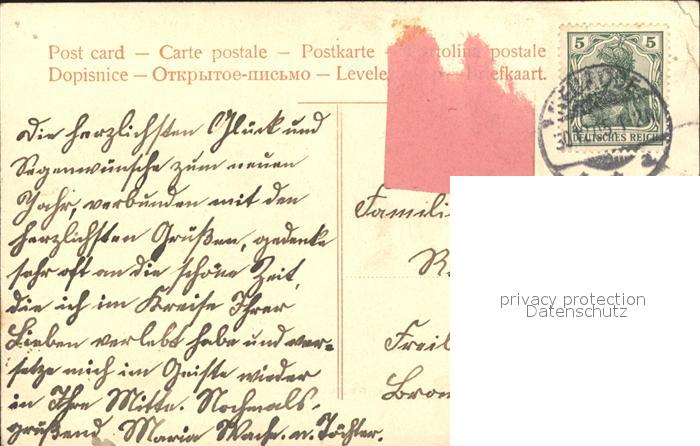 Post card — Carte postale — Postkarte — Cartolina postale
Dopisnice — Открытое-письмо — Levele Briefkaart.
5 5
DEUTSCHES REICH
Die herzlichsten Glück und
Segenwünsche zum neuen
Jahr, verbunden mit den
herzlichsten Grüßen, gedenke
sehr oft an die schöne Zeit,
die ich im Kreise Ihrer
Lieben verlebt habe und ver-
setze mich im Geiste wieder
in Ihre Mitte. Nochmals
grüßend Maria Wache. u. Töchter.
Famili
R
Freil
Bro
privacy protection
Datenschutz